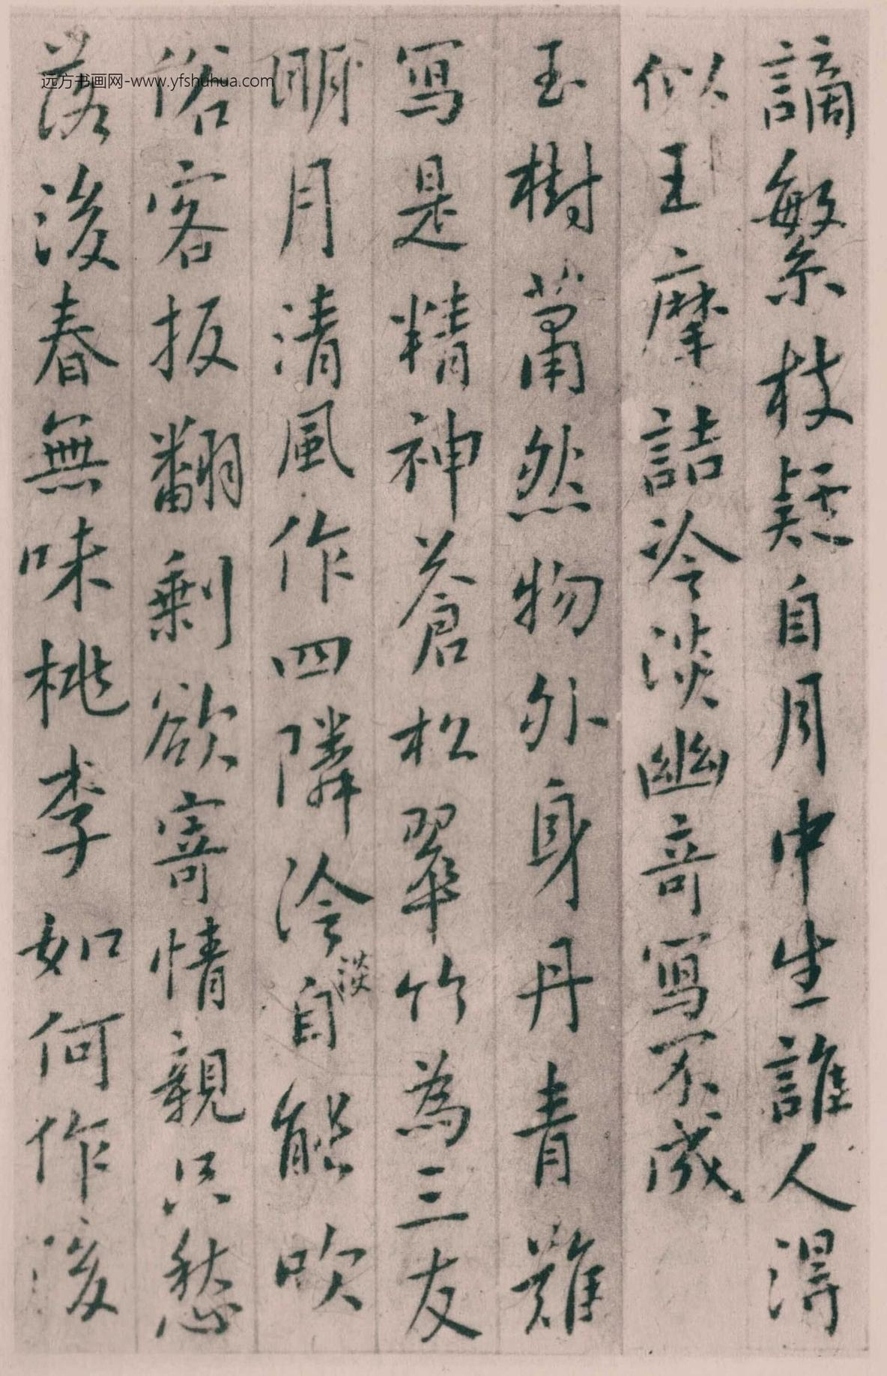 謫繁枝疑自月中生誰人得
似王摩詰泠淡幽竒寫不成
玉樹蕭然物外身丹青難
寫是精神蒼松翠竹為三友
明月清風作四隣泠淡自能吹
俗客扳翻剩欲寄情親只愁
落後春無味桃李如何作後
远方书画网-www.yfshuhua.com